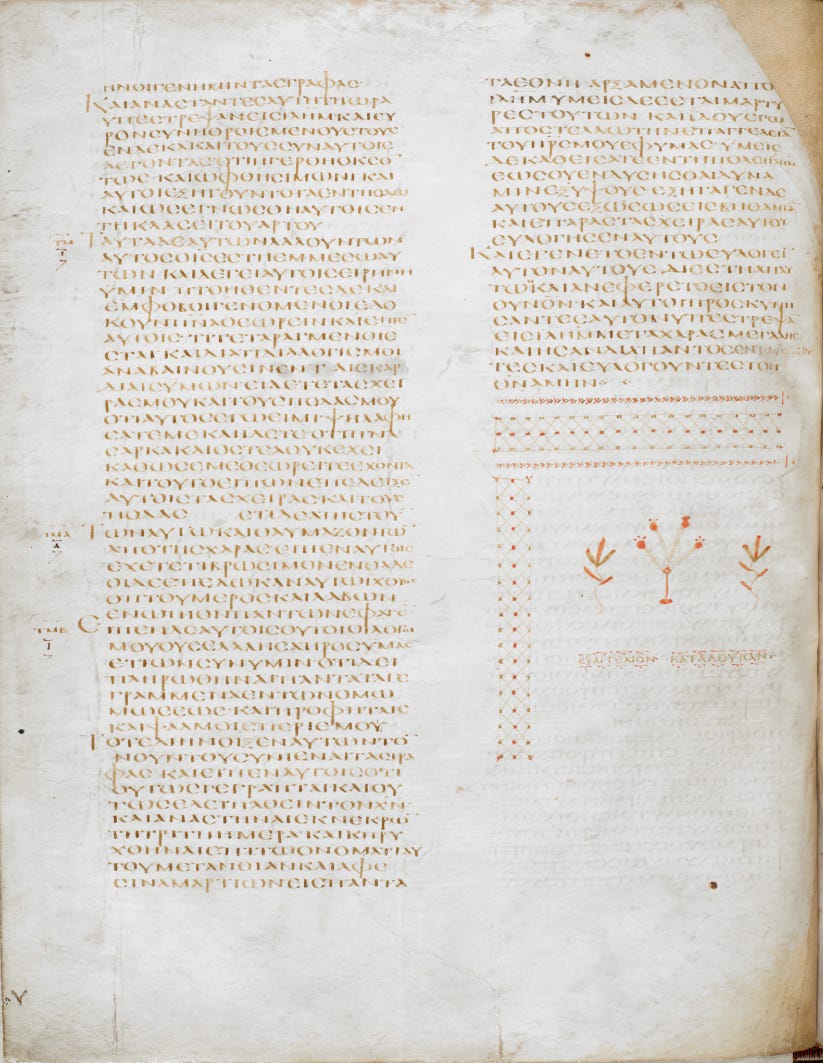 ΗΝΟΙΓΕΝΗΜΙΝΤΑϹΓΡΑΦΑϹ·
ΚΑΙΑΝΑϹΤΑΝΤΕϹΑΥΤΗΤΗΩΡΑ
ΥΠΕϹΤΡΕΨΑΝΕΙϹΙΛΗΜΚΑΙΕΥ
ΡΟΝϹΥΝΗΘΡΟΙϹΜΕΝΟΥϹΤΟΥϹ
ΕΝΔΕΚΑΚΑΙΤΟΥϹϹΥΝΑΥΤΟΙϹ
ΛΕΓΟΝΤΑϹΟΤΙΗΓΕΡΘΗΟΚϹΟ
ΤΩϹ ΚΑΙΩΦΘΗϹΙΜΩΝΙ ΚΑΙ
ΑΥΤΟΙΕΞΗΓΟΥΝΤΟΤΑΕΝΤΗΟΔΩ
ΚΑΙΩϹΕΓΝΩϹΘΗΑΥΤΟΙϹΕΝ
ΤΗΚΛΑϹΕΙΤΟΥΑΡΤΟΥ
ΤΜ
ΤΑΥΤΑΔΕΑΥΤΩΝΛΑΛΟΥΝΤΩΝ
ΑΥΤΟϹΟΙϹΕϹΤΗΕΜΜΕϹΩΑΥ
ΤΩΝ ΚΑΙΛΕΓΕΙΑΥΤΟΙϹΕΙΡΗΝΗ
ΥΜΙΝ ΠΤΟΗΘΕΝΤΕϹΔΕΚΑΙ
ΕΜΦΟΒΟΙΓΕΝΟΜΕΝΟΙΕΔΟ
ΚΟΥΝΠΝΑΘΕΩΡΕΙΝ ΚΑΙΕΙΠΕ
ΑΥΤΟΙϹ· ΤΙΤΕΤΑΡΑΓΜΕΝΟΙΕ
ϹΤΑΙ ΚΑΙΔΙΑΤΙΔΙΑΛΟΓΙϹΜΟΙ
ΑΝΑΒΑΙΝΟΥϹΙΝΕΝΤΑΙϹΚΑΡ
ΔΙΑΙϹΥΜΩΝ ΕΙΔΕΤΕΤΑϹΧΕΙ
ΡΑϹΜΟΥΚΑΙΤΟΥϹΠΟΔΑϹΜΟΥ
ΟΤΙΑΥΤΟϹΕΓΩΕΙΜΙ ΨΗΛΑΦΗ
ϹΑΤΕΜΕ ΚΑΙΙΔΕΤΕΟΤΙΠΝΑ
ϹΑΡΚΑΚΑΙΟϹΤΕΑΟΥΚΕΧΕΙ
ΚΑΘΩϹΕΜΕΘΕΩΡΕΙΤΕΕΧΟΝΤΑ
ΚΑΙΤΟΥΤΟΕΙΠΩΝΕΠΕΔΕΙΞΕ
ΑΥΤΟΙϹΤΑϹΧΕΙΡΑϹΚΑΙΤΟΥϹ
ΠΟΔΑϹ ΕΤΙΔΕΑΠΙϹΤΟΥ
ΤΜΑ
ΤΩΝΑΥΤΩΚΑΙΘΑΥΜΑΖΟΝΤΩ
ΑΠΟΤΗϹΧΑΡΑϹ ΕΙΠΕΝΑΥΤΟΙϹ
ΕΧΕΤΕΤΙΒΡΩϹΙΜΟΝΕΝΘΑΔΕ
ΟΙΔΕΕΠΕΔΩΚΑΝΑΥΤΩΙΧΘΥΟϹ
ΟΠΤΟΥΜΕΡΟϹ ΚΑΙΛΑΒΩΝ
ΕΝΩΠΙΟΝΠΑΝΤΩΝΕΦΑΓΕ
ΤΜΒ
ΕΙΠΕΝΔΕΑΥΤΟΙϹΟΥΤΟΙΟΙΛΟΓΟΙ
ΜΟΥΟΥϹΕΛΑΛΗϹΑΠΡΟϹΥΜΑϹ
ΕΤΙΩΝϹΥΝΥΜΙΝ ΟΤΙΔΕΙ
ΠΛΗΡΩΘΗΝΑΙΠΑΝΤΑΤΑΓΕ
ΓΡΑΜΜΕΝΑΕΝΤΩΝΟΜΩ
ΜΩϹΕΩϹ ΚΑΙΠΡΟΦΗΤΑΙϹ
ΚΑΙΨΑΛΜΟΙϹΠΕΡΙΕΜΟΥ
ΤΟΤΕΔΙΗΝΟΙΞΕΝΑΥΤΩΝΤΟ
ΝΟΥΝΤΟΥϹΥΝΙΕΝΑΙΤΑϹΓΡΑ
ΦΑϹ· ΚΑΙΕΙΠΕΝΑΥΤΟΙϹΟΤΙ
ΟΥΤΩϹΓΕΓΡΑΠΤΑΙΚΑΙΟΥ
ΤΩϹΕΔΕΙΠΑΘΕΙΝΤΟΝΧΝ
ΚΑΙΑΝΑϹΤΗΝΑΙΕΚΝΕΚΡΩ
ΤΗΤΡΙΤΗΗΜΕΡΑ ΚΑΙΚΗΡΥ
ΧΘΗΝΑΙΕΠΙΤΩΟΝΟΜΑΤΙΑΥ
ΤΟΥΜΕΤΑΝΟΙΑΝΚΑΙΑΦΕ
ϹΙΝΑΜΑΡΤΙΩΝΕΙϹΠΑΝΤΑ
ΤΑΕΘΝΗ ΑΡΞΑΜΕΝΟΝΑΠΟ
ΙΛΗΜ ΥΜΕΙϹΔΕΕϹΤΑΙΜΑΡΤΥ
ΡΕϹΤΟΥΤΩΝ ΚΑΙΙΔΟΥΕΓΩ
ΑΠΟϹΤΕΛΛΩΤΗΝΕΠΑΓΓΕΛΙΑ
ΤΟΥΠΡϹΜΟΥΕΦΥΜΑϹ· ΥΜΕΙϹ
ΔΕΚΑΘΕΙϹΑΤΕΕΝΤΗΠΟΛΕΙ
ΕΩϹΟΥΕΝΔΥϹΗϹΘΑΙΔΥΝΑ
ΜΙΝΕΞΥΨΟΥϹ ΕΞΗΓΑΓΕΝΔΕ
ΑΥΤΟΥϹΕΞΩΕΩϹΕΙϹΒΗΘΑΝΙΑ
ΚΑΙΕΠΑΡΑϹΤΑϹΧΕΙΡΑϹΑΥΤΟΥ
ΕΥΛΟΓΗϹΕΝΑΥΤΟΥϹ
ΚΑΙΕΓΕΝΕΤΟΕΝΤΩΕΥΛΟΓΕΙ
ΑΥΤΟΝΑΥΤΟΥϹ ΔΙΕϹΤΗΑΠΑΥ
ΤΩ ΚΑΙΑΝΕΦΕΡΕΤΟΕΙϹΤΟΝ
ΟΥΝΟΝ· ΚΑΙΑΥΤΟΙΠΡΟϹΚΥΝΗ
ϹΑΝΤΕϹΑΥΤΟΝΥΠΕϹΤΡΕΨΑ
ΕΙϹΙΛΗΜΜΕΤΑΧΑΡΑϹΜΕΓΑΛΗϹ
ΚΑΙΗϹΑΝΔΙΑΠΑΝΤΟϹΕΝΤΩ
ΤΕϹΚΑΙΕΥΛΟΓΟΥΝΤΕϹΤΟΝ
ΘΝΑΜΗΝ
ΕΥΑΓΓΕΛΙΟΝ ΚΑΤΑΛΟΥΚΑΝ